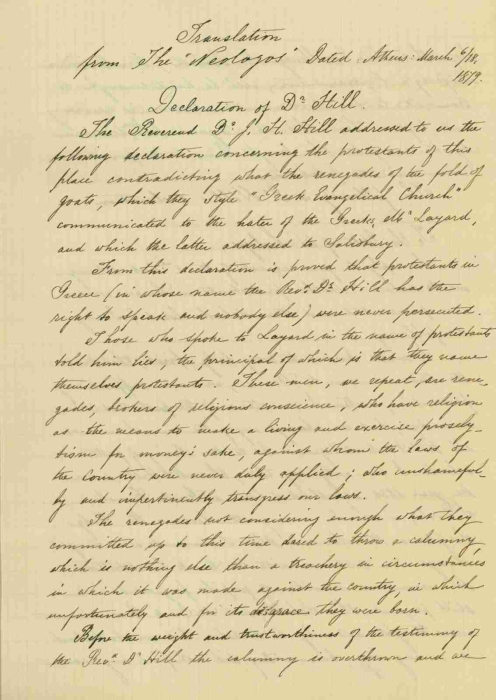 Translation
from The "Neologos" Dated Athens March 6/18,
1879.
Declaration of Dr Hill.
The Reverend Dr J. H. Hill addressed to us the
following declaration concerning the protestants of this
place contradicting what the renegades of the fold of
goats, which they style "Greek Evangelical Church"
communicated to the hater of the Greeks, Layard,
and which the latter addressed to Salisbury.
From this declaration is proved that protestants in
Greece (in whose name the Revd Dr Hill has the
right to speak and nobody else) were never persecuted.
Those who spoke to Layard in the name of protestants
told him lies, the principal of which is that they name
themselves protestants. These men, we repeat, are rene-
gades, brokers of religious conscience, who have religion
as the means to make a living and exercise prosely-
tism for money's sake, against whom the laws of
the Country were never duly applied; who unshameful-
ly and impertinently transgress our laws.
The renegades not considering enough what they
committed up to this time dared to throw a calumny
which is nothing else than a treachery in circumstances
in which it was made against the country, in which
unfortunately and for its disgrace they were born.
Before the weight and trustworthiness of the testimony of
the Revd Dr Hill the calumny is overthrown and we